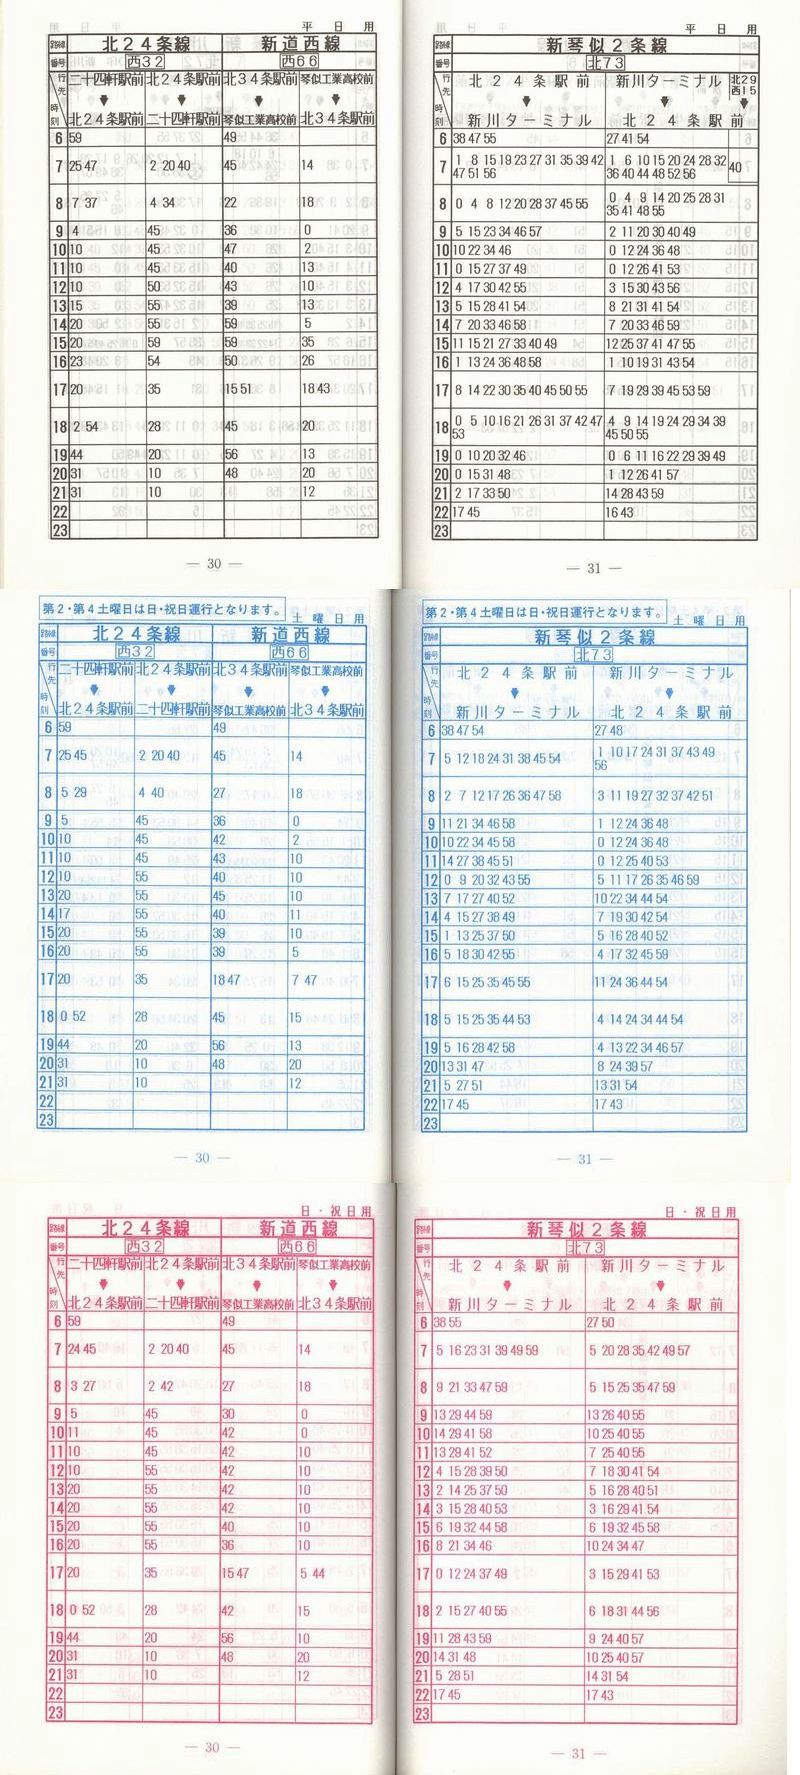 平日用
路線 北２４条線 新道西線
番号 西３２ 西６６
行先 二十四軒駅前 北２４条駅前 北３４条駅前 琴似工業高校前
時刻 北２４条駅前 二十四軒駅前 琴似工業高校前 北３４条駅前
6 59 49
7 25 47 2 20 40 45 14
8 7 37 4 34 22 18
9 4 45 36 0
10 10 45 47 2
11 10 45 40 13
12 10 50 43 10
13 15 55 39 13
14 20 55 59 5
15 20 59 59 35
16 23 54 50 26
17 20 35 15 51 18 43
18 2 54 28 45 20
19 44 20 56 13
20 31 10 48 20
21 31 10 12
22
23
— 30 —
平日用
路線 新琴似２条線
番号 北７３
行先 北２４条駅前 新川ターミナル 北２９西１５
時刻 新川ターミナル 北２４条駅前
6 38 47 55 27 41 54
7 1 8 15 19 23 27 31 35 39 42 1 6 10 15 20 24 28 32 40
47 51 56 36 40 44 48 52 56
8 0 4 8 12 20 28 37 45 55 0 4 9 14 20 25 28 31
35 41 48 55
9 5 15 23 34 46 57 2 11 20 30 40 49
10 10 22 34 46 0 12 24 36 48
11 0 15 27 37 49 0 12 26 41 53
12 4 17 30 42 55 3 15 30 43 56
13 5 15 28 41 54 8 21 31 41 54
14 7 20 33 46 58 7 20 33 46 59
15 11 15 21 27 33 40 49 12 25 37 41 47 55
16 1 13 24 36 48 58 1 10 19 31 43 54
17 8 14 22 30 35 40 45 50 55 7 19 29 39 45 53 59
18 0 5 10 16 21 26 31 37 42 47 4 9 14 19 24 29 34 39
53 45 50 55
19 0 10 20 32 46 0 6 11 16 22 29 39 49
20 0 15 31 48 1 12 26 41 57
21 2 17 33 50 14 28 43 59
22 17 45 16 43
23
— 31 —
第２・第４土曜日は日・祝日運行となります。 土曜日用
路線 北２４条線 新道西線
番号 西３２ 西６６
行先 二十四軒駅前 北２４条駅前 北３４条駅前 琴似工業高校前
時刻 北２４条駅前 二十四軒駅前 琴似工業高校前 北３４条駅前
6 59 49
7 25 45 2 20 40 45 14
8 5 29 4 40 27 18
9 5 45 36 0
10 10 45 42 2
11 10 45 43 10
12 10 55 40 10
13 20 55 40 10
14 17 55 40 11
15 20 55 39 10
16 20 55 39 5
17 20 35 18 47 7 47
18 0 52 28 45 15
19 44 20 56 13
20 31 10 48 20
21 31 10 12
22
23
— 30 —
第２・第４土曜日は日・祝日運行となります。 土曜日用
路線 新琴似２条線
番号 北７３
行先 北２４条駅前 新川ターミナル
時刻 新川ターミナル 北２４条駅前
6 38 47 54 27 48
7 5 12 18 24 31 38 45 54 1 10 17 24 31 37 43 49
56
8 2 7 12 17 26 36 47 58 3 11 19 27 32 37 42 51
9 11 21 34 46 58 1 12 24 36 48
10 10 22 34 45 58 0 12 24 36 48
11 14 27 38 45 51 0 12 25 40 53
12 0 9 20 32 43 55 5 11 17 26 35 46 59
13 7 17 27 40 52 10 22 34 44 54
14 4 15 27 38 49 7 19 30 42 54
15 1 13 25 37 50 5 16 28 40 52
16 5 18 30 42 55 4 17 32 45 59
17 6 15 25 35 45 55 11 24 36 44 54
18 5 15 25 35 44 53 4 14 24 34 44 54
19 5 16 28 42 58 4 13 22 34 46 57
20 13 31 47 8 24 39 57
21 5 27 51 13 31 54
22 17 45 17 43
23
— 31 —
日・祝日用
路線 北２４条線 新道西線
番号 西３２ 西６６
行先 二十四軒駅前 北２４条駅前 北３４条駅前 琴似工業高校前
時刻 北２４条駅前 二十四軒駅前 琴似工業高校前 北３４条駅前
6 59 49
7 24 45 2 20 40 45 14
8 3 27 2 42 27 18
9 5 45 30 0
10 11 45 42 0
11 10 45 42 10
12 10 55 42 10
13 20 55 42 10
14 20 55 42 10
15 20 55 40 10
16 20 55 36 10
17 20 35 15 47 5 44
18 0 52 28 42 15
19 44 20 56 10
20 31 10 48 20
21 31 10 12
22
23
— 30 —
日・祝日用
路線 新琴似２条線
番号 北７３
行先 北２４条駅前 新川ターミナル
時刻 新川ターミナル 北２４条駅前
6 38 55 27 50
7 5 16 23 31 39 49 59 5 20 28 35 42 49 57
8 9 21 33 47 59 5 15 25 35 47 59
9 13 29 44 59 13 26 40 55
10 14 29 41 58 10 25 40 55
11 13 29 41 52 7 25 40 55
12 4 15 28 39 50 7 18 30 41 54
13 2 14 25 37 50 5 16 28 40 51
14 3 15 28 40 53 3 16 29 41 54
15 6 19 32 44 58 6 19 32 45 58
16 8 21 34 46 10 24 34 47
17 0 12 24 37 49 3 15 29 41 53
18 2 15 27 40 55 6 18 31 44 56
19 11 28 43 59 9 24 40 57
20 14 31 48 10 25 40 57
21 5 28 51 14 31 54
22 17 45 17 43
23
— 31 —